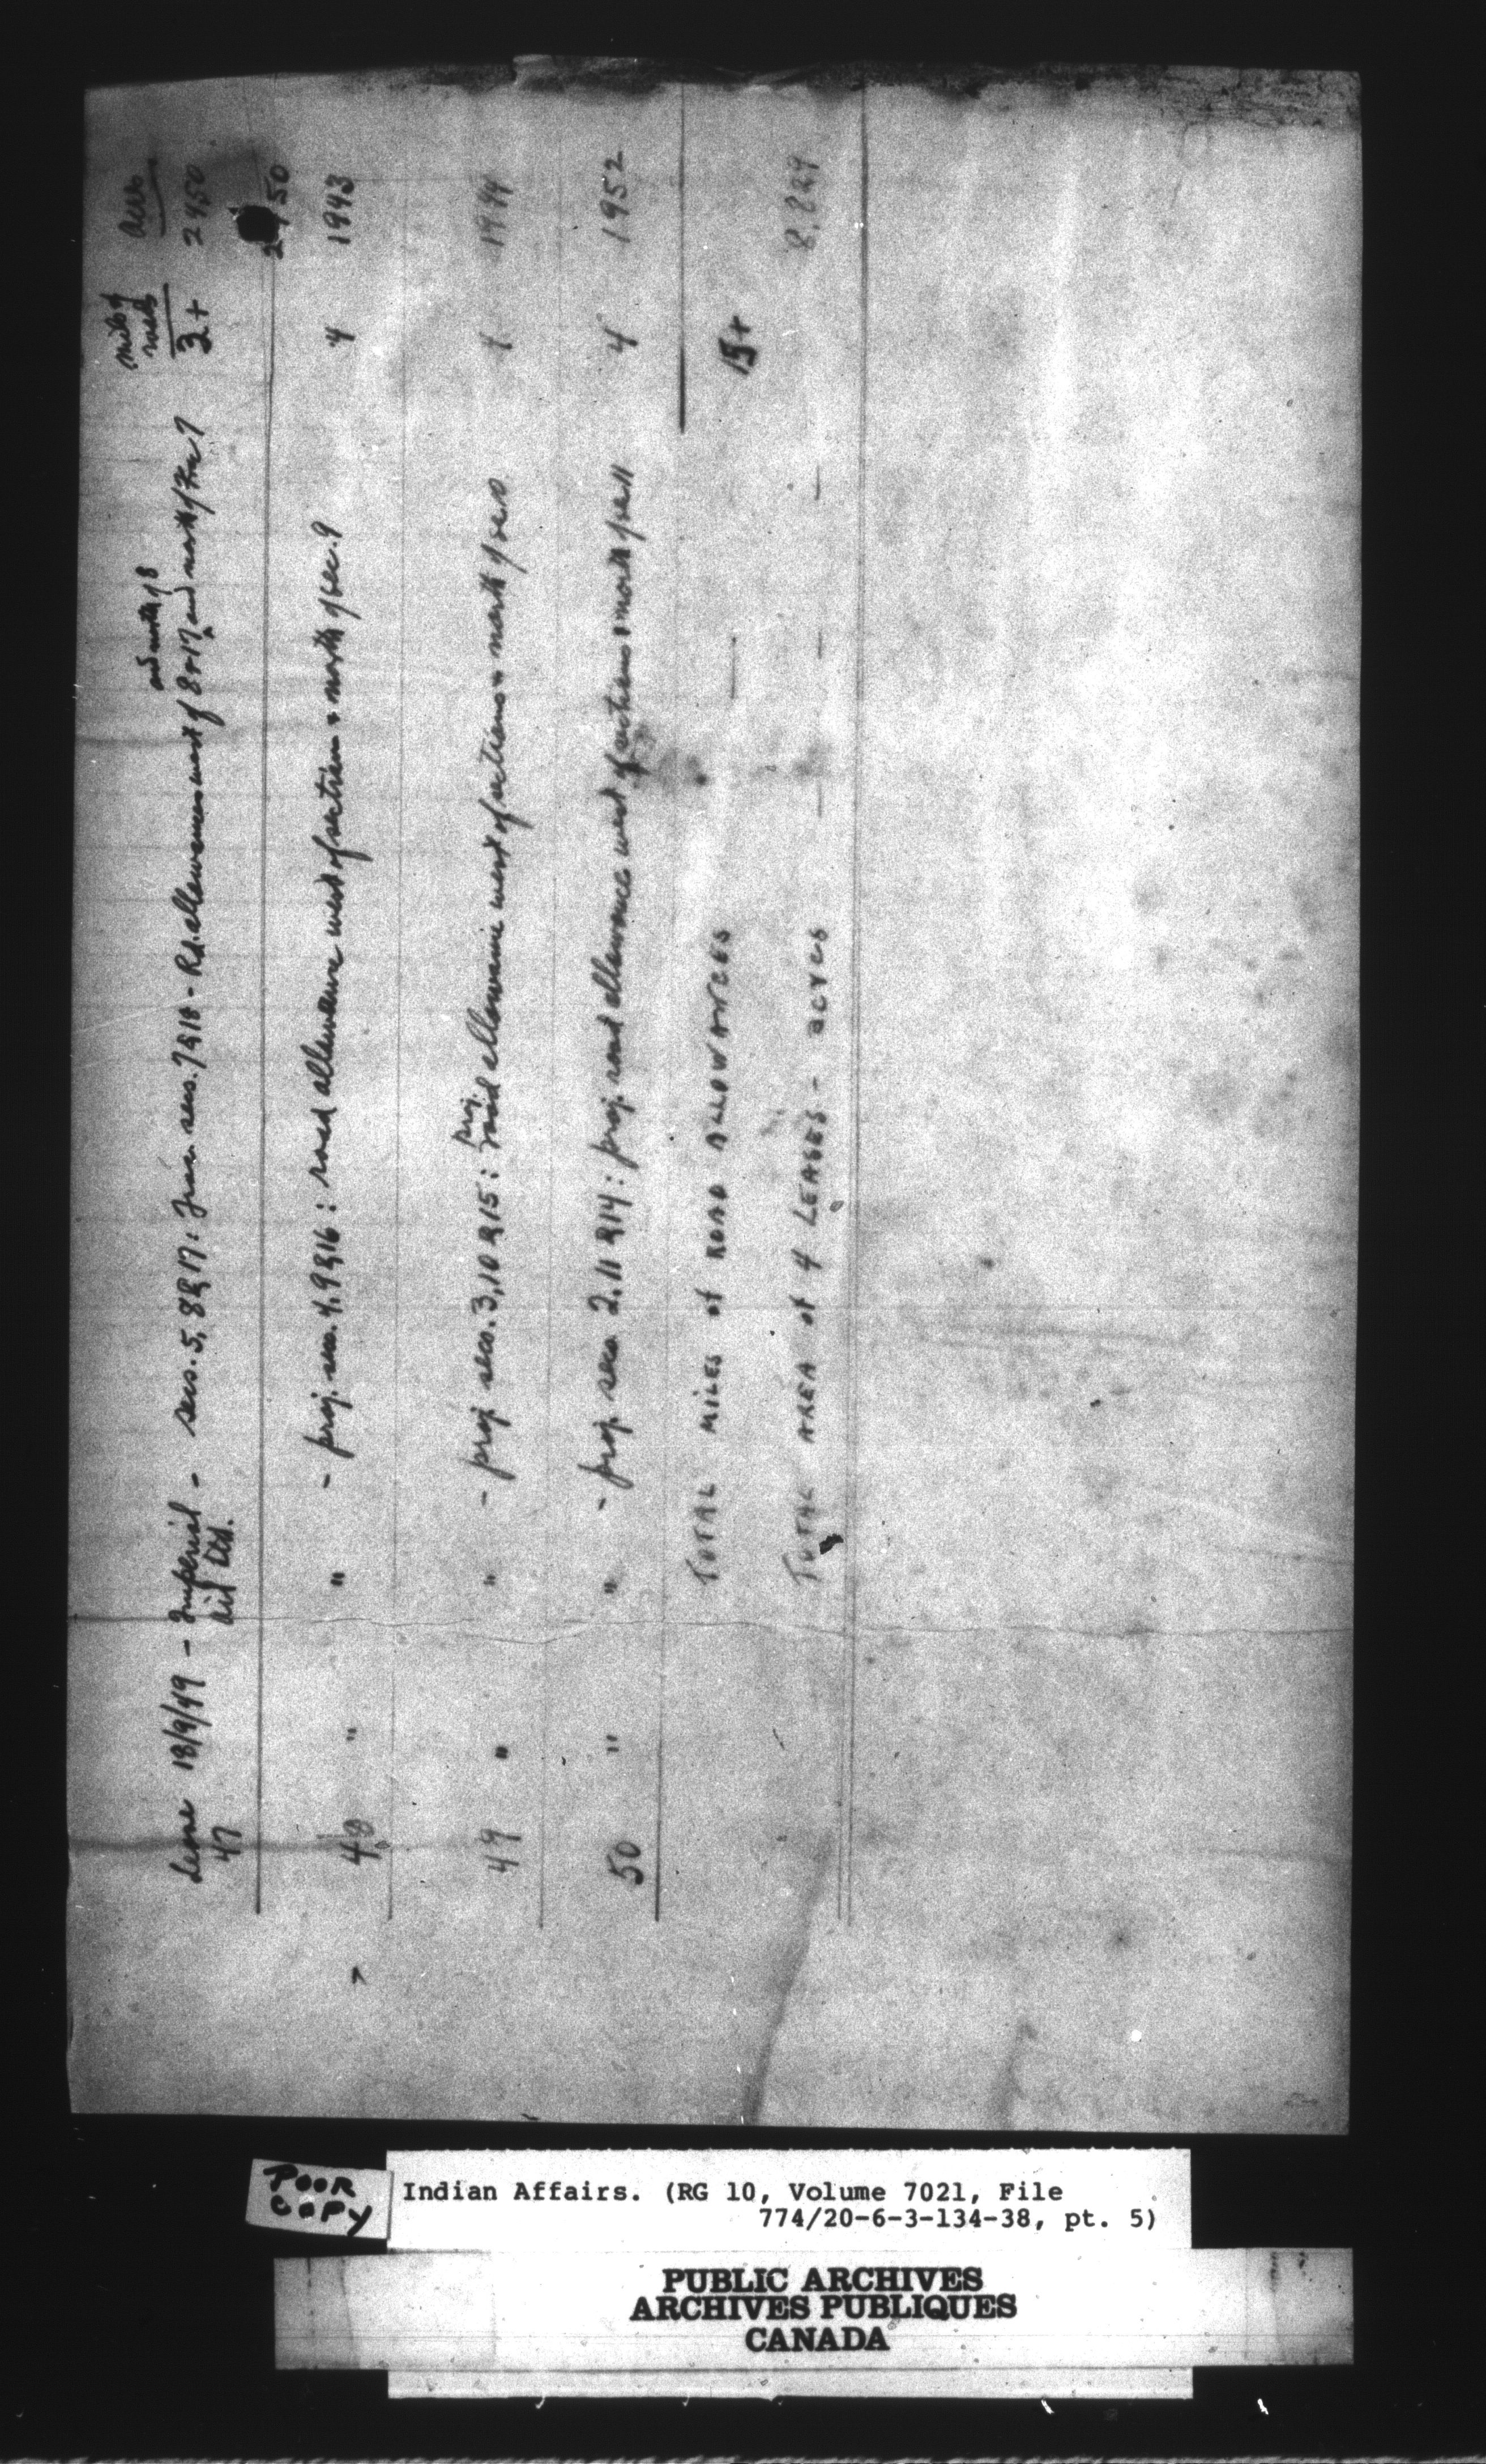 miles of acres
roads
and north of 8
Lease 18/9/49 - Imperial - secs. 5, 8 & 17: Frac. secs. 7 & 18 - Rd. allowances west of 8 & 17 and north of Frac 7 3+ 2950
47 Oil Ltd.
50
48 " " - proj. secs. 4, 9 & 16: road allowance west of sections & north of sec. 9 4 1943
proj.
49 " " - proj. secs. 3, 10 & 15: road allowance west of sections & north of sec 10 4 1944
50 " " - proj. secs. 2, 11 & 14: proj. road allowance west of sections & north of sec 11 4 1952
TOTAL MILES of ROAD ALLOWANCES — 15+
TOTAL AREA of 4 LEASES - acres — — — 8,229
POOR
COPY
Indian Affairs. (RG 10, Volume 7021, File
774/20-6-3-134-38, pt. 5)
PUBLIC ARCHIVES
ARCHIVES PUBLIQUES
CANADA